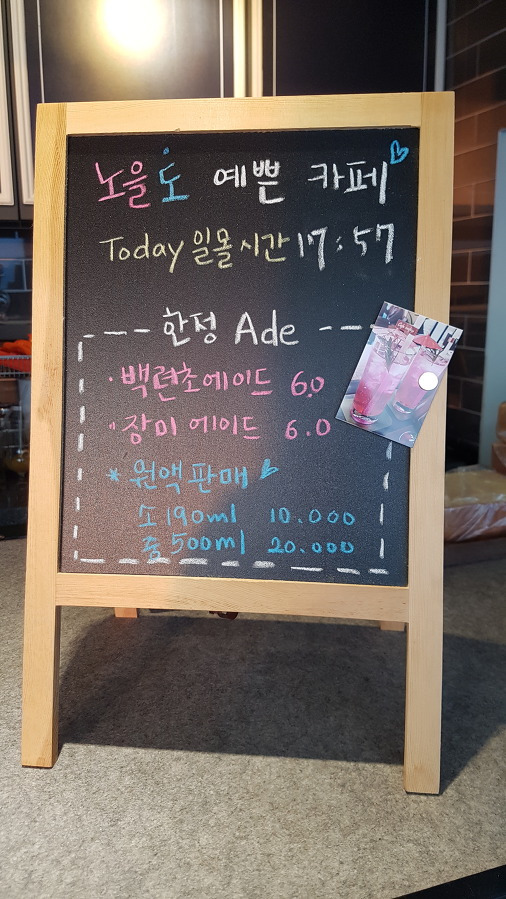 노을도 예쁜 카페
Today 일몰시간 17:57
한정 Ade
· 백련초에이드 6.0
· 장미에이드 6.0
* 원액판매
소 190ml 10.000
중 500ml 20.000